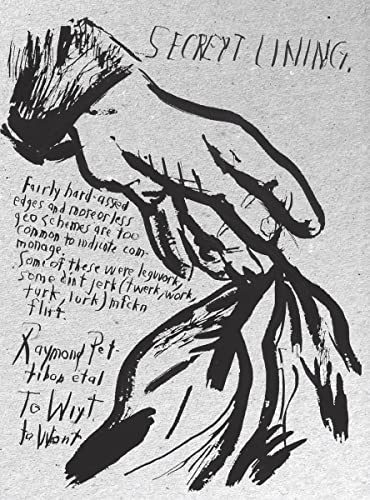 SECREYT LINING.
Fairly hard-assed
edges and more or less
geo schemes are too
common to indicate com-
monage.
Some of these were legwork,
some ain't jerk (twerk, work,
turk, lurk) mfckn
flirt
Raymond Pet-
tibon et al
To Wiyt,
to Wont